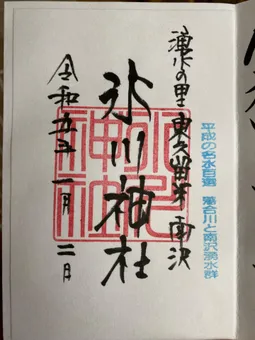 平成の名水百選 落合川と南沢湧水群
湧水の里 東久留米 南沢
氷川神社
氷川神社
令和五年一月二日